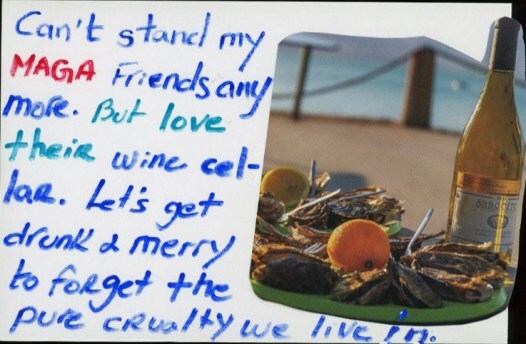 Can't stand my
MAGA Friends any
more. But love
their wine cel-
lar. Let's get
drunk & merry
to forget the
pure crualty we live in.